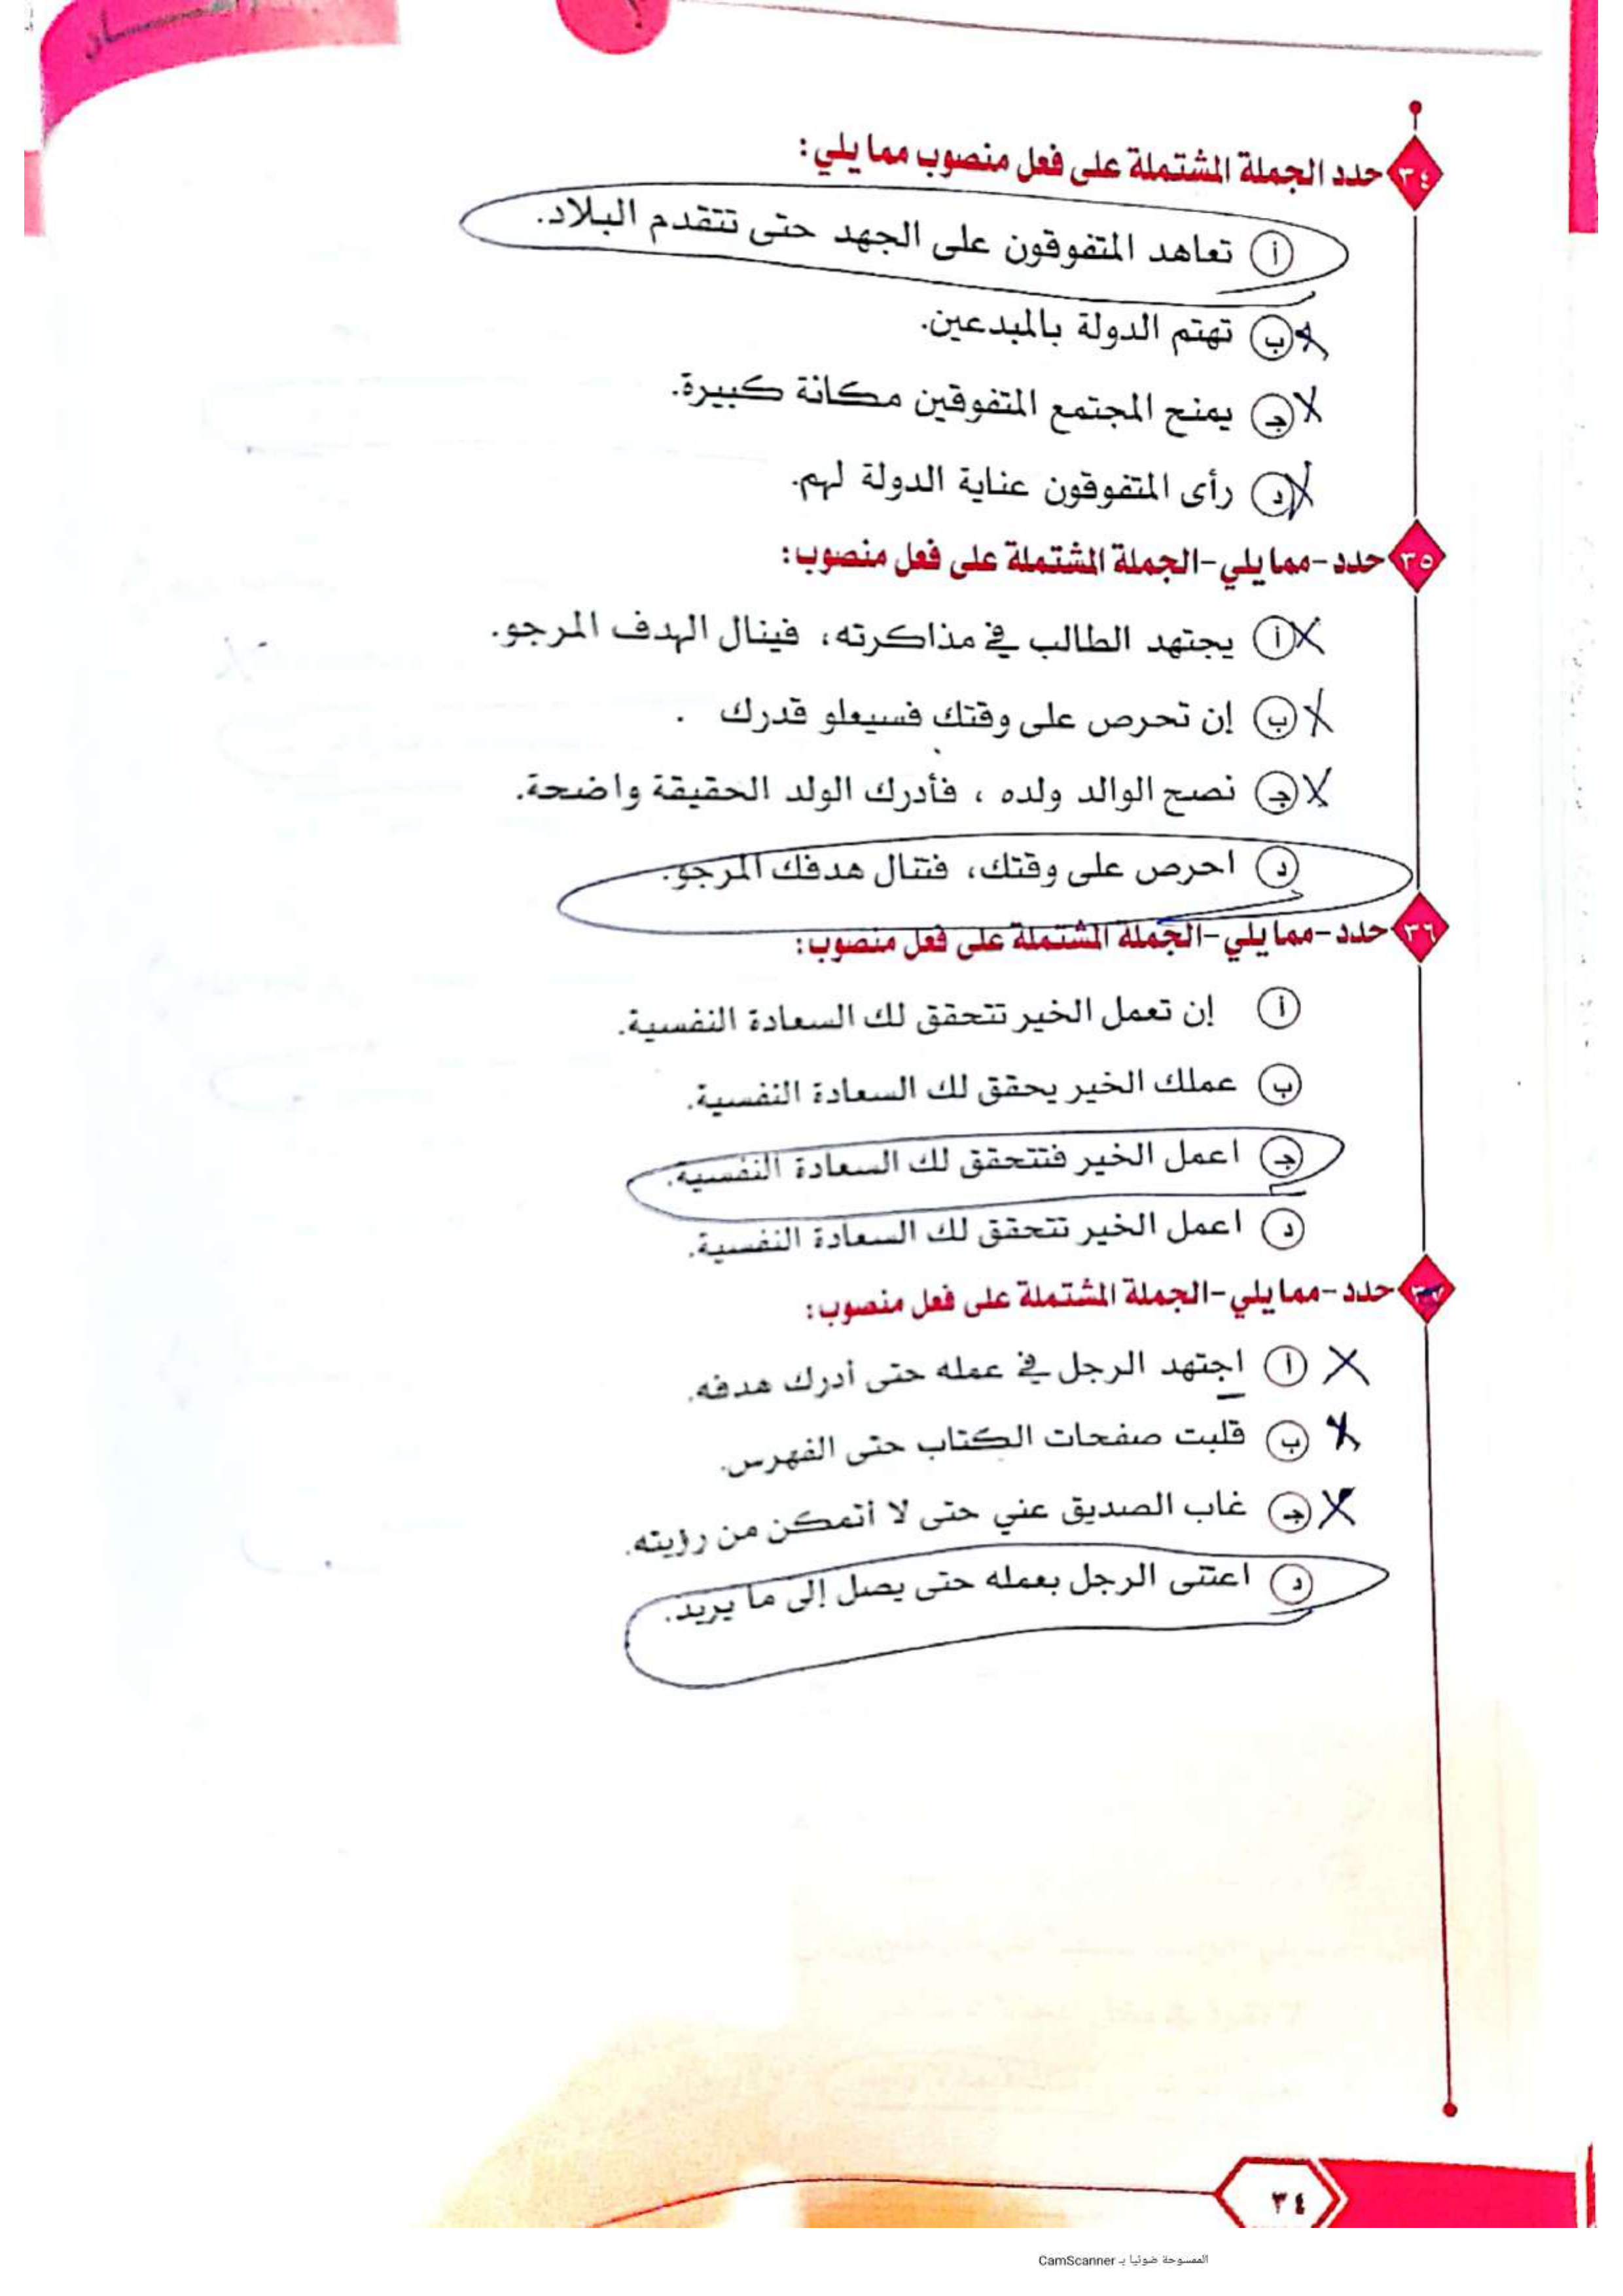 ٣٤ حدد الجملة المشتملة على فعل منصوب مما يلي:
أ تعاهد المتفوقون على الجهد حتى تتقدم البلاد.
ب تهتم الدولة بالمبدعين.
جـ يمنح المجتمع المتفوقين مكانة كبيرة.
د رأى المتفوقون عناية الدولة لهم.
٣٥ حدد -مما يلي- الجملة المشتملة على فعل منصوب:
أ يجتهد الطالب في مذاكرته، فينال الهدف المرجو.
ب إن تحرص على وقتك فسيعلو قدرك .
جـ نصح الوالد ولده ، فأدرك الولد الحقيقة واضحة.
د احرص على وقتك، فتنال هدفك المرجو.
٣٦ حدد -مما يلي- الجملة المشتملة على فعل منصوب:
أ إن تعمل الخير تتحقق لك السعادة النفسية.
ب عملك الخير يحقق لك السعادة النفسية.
جـ اعمل الخير فتتحقق لك السعادة النفسية.
د اعمل الخير تتحقق لك السعادة النفسية.
٣٧ حدد -مما يلي- الجملة المشتملة على فعل منصوب:
أ اجتهد الرجل في عمله حتى أدرك هدفه.
ب قلبت صفحات الكتاب حتى الفهرس.
جـ غاب الصديق عني حتى لا أتمكن من رؤيته.
د اعتنى الرجل بعمله حتى يصل إلى ما يريد.
٣٤
الممسوحة ضوئيا بـ CamScanner